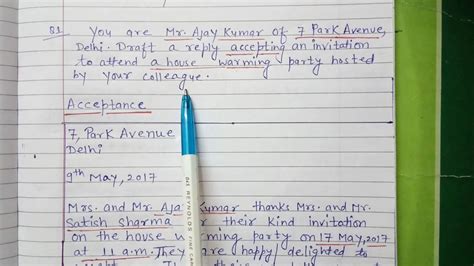 Q1 You are Mr. Ajay Kumar of 7 Park Avenue,
Delhi. Draft a reply accepting an invitation
to attend a house warming party hosted
by your colleague.
Acceptance
7, Park Avenue
Delhi
9th May, 2017
Mrs. and Mr. Aj Kumar thanks Mrs. and Mr.
Satish Sharma their kind invitation
on the house w ming party on 17 May, 2017
at 11 a.m. They are happy delighted to
REYNOLDS